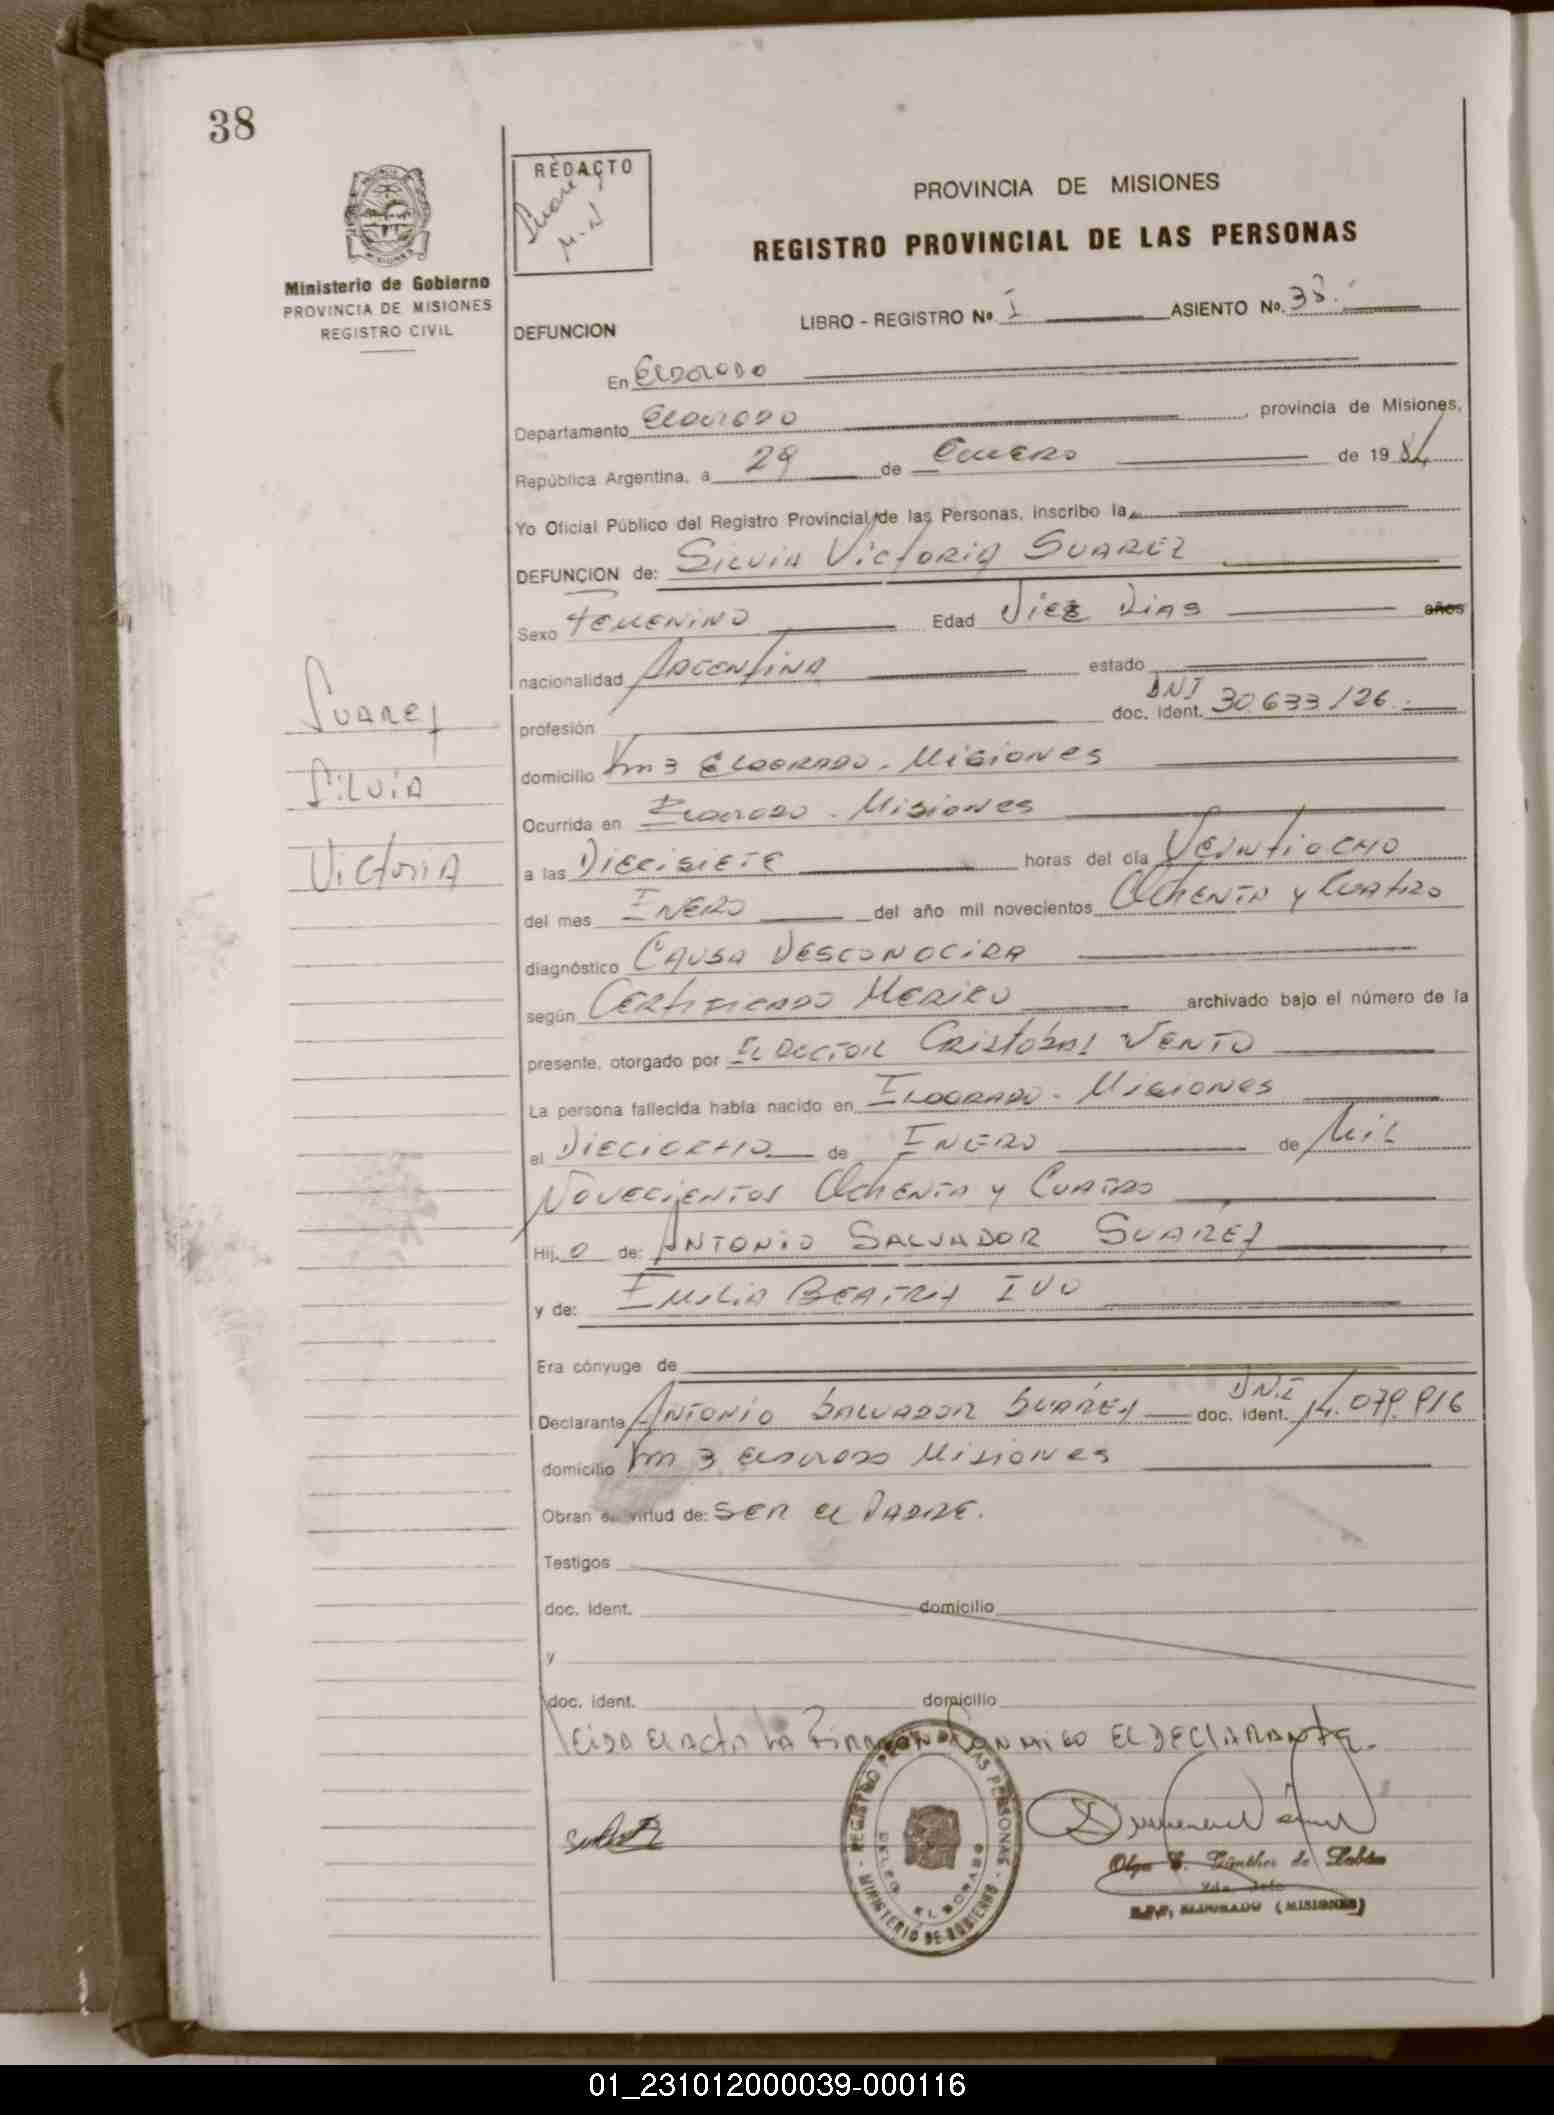 38
REDACTO
Suarez
M-N
PROVINCIA DE MISIONES
REGISTRO PROVINCIAL DE LAS PERSONAS
Ministerio de Gobierno
PROVINCIA DE MISIONES
REGISTRO CIVIL
DEFUNCION
LIBRO - REGISTRO Nº I ASIENTO Nº 38.
En Eldorado
Departamento Eldorado, provincia de Misiones,
República Argentina, a 29 de Enero de 1984
Yo Oficial Público del Registro Provincial de las Personas, inscribo la
DEFUNCION de: Silvia Victoria SUAREZ
Sexo Femenino Edad Diez Dias años
nacionalidad Argentina estado
profesión doc. ident. DNI 30.633.126.
domicilio Km 3 Eldorado - Misiones
Ocurrida en Eldorado - Misiones
a las Diecisiete horas del día Veintiocho
del mes Enero del año mil novecientos Ochenta y Cuatro
diagnóstico Causa Desconocida
según Certificado Medico archivado bajo el número de la
presente, otorgado por El Doctor Cristobal Vento
La persona fallecida había nacido en Eldorado - Misiones
el Dieciocho de Enero de Mil
Novecientos Ochenta y Cuatro
Hij o de: Antonio Salvador Suárez
y de: Emilia Beatriz IVO
Era cónyuge de
Declarante Antonio Salvador Suárez doc. ident. D.N.I 14.079.916
domicilio Km 3 Eldorado Misiones
Obran en virtud de: Ser el Padre.
Testigos
doc. ident. domicilio
y
doc. ident. domicilio
Leida el acta la Firma Conmigo el declarante.
Suarez
Silvia
Victoria
REGISTRO PROV. DE LAS PERSONAS
MINISTERIO DE GOBIERNO
DELEG. ELDORADO
Olga E. Günther de
R.P.P. ELDORADO (MISIONES)
01_231012000039-000116